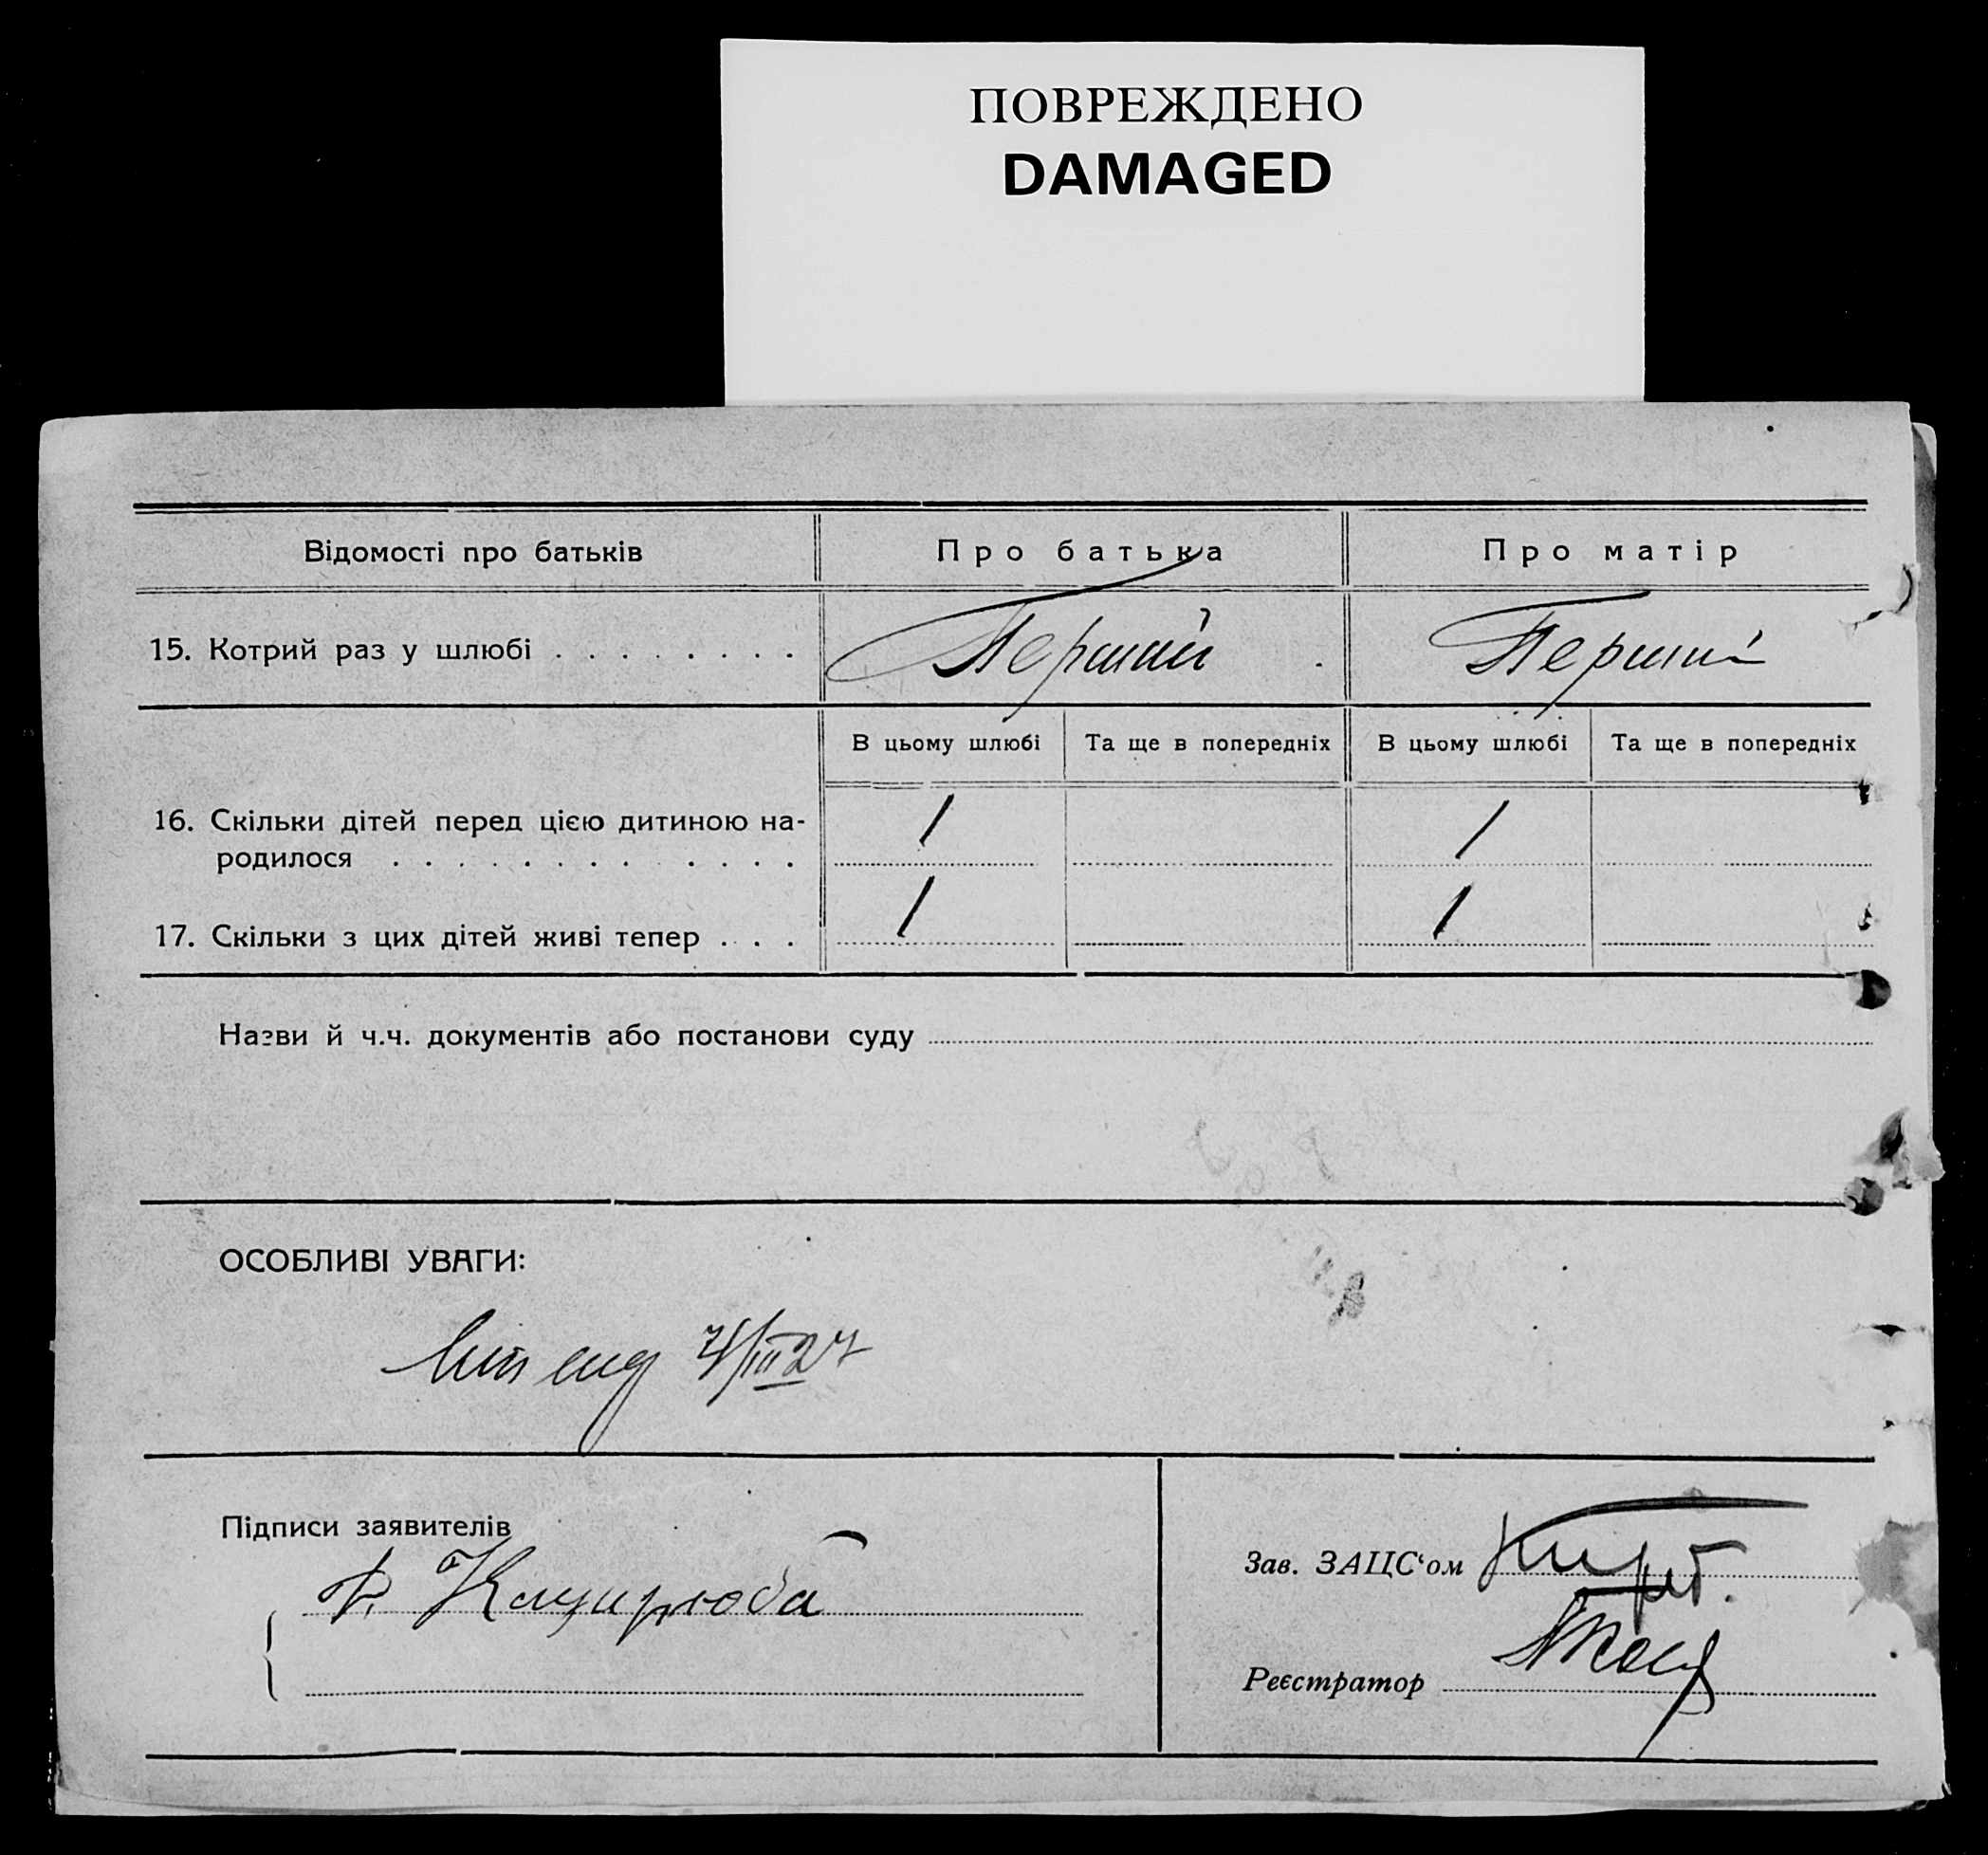 ПОВРЕЖДЕНО
DAMAGED
Відомості про батьків
Про батька
Про матір
15. Котрий раз у шлюбі . . . . . . . .
Перший
Перший
В цьому шлюбі
Та ще в попередніх
В цьому шлюбі
Та ще в попередніх
16. Скільки дітей перед цією дитиною на-
родилося . . . . . . . . . . . .
1
1
17. Скільки з цих дітей живі тепер . . . .
1
1
Назви й ч.ч. документів або постанови суду
ОСОБЛИВІ УВАГИ:
Підписи заявителів
Зав. ЗАЦС'ом
Реєстратор